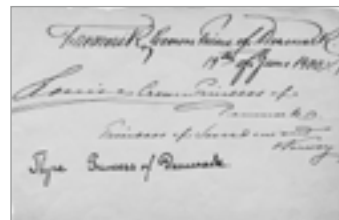 Frederik, Crown Prince of Denmark
19th of June 1900
Louise Crown Princess of
Denmark
Princess of Sweden and
Norway
Thyra Princess of Denmark.